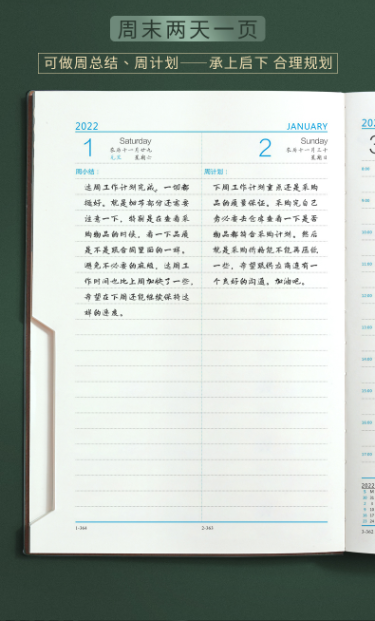 周末两天一页
可做周总结、周计划——承上启下 合理规划
2022
JANUARY
1
Saturday
农历十一月廿九
元旦 星期六
2
Sunday
农历十一月三十
星期日
周小结:
这周工作计划完成。一切都
挺好。就是细节部分还需要
注意一下,特别是在查看采
购物品的时候,看一下品质
是不是跟合同里面的一样。
避免不必要的麻烦,这周工
作时间也比上周加快了一些,
希望在下周还能继续保持这
样的速度。
周计划:
下周工作计划重点还是采购
品的质量保证。采购完自己
务必要去仓库查看一下是否
物品都符合采购计划。然后
就是采购价格能不能再压低
一些,希望跟供应商道有一
个良好的沟通。加油吧。
1-364
2-363
202
3
8:00
9:00
12:00
17:00
2022
3-362